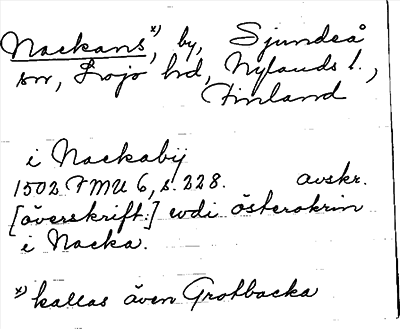 Nackans ˣ⁾, by, Sjundeå
sn, Lojo hd, Nylands l.,
Finland
i Nackabÿ
1502 FMU 6, s. 228. avskr.
[överskrift:] vdi österokrin
i Nacka.
ˣ⁾ kallas även Grotbacka